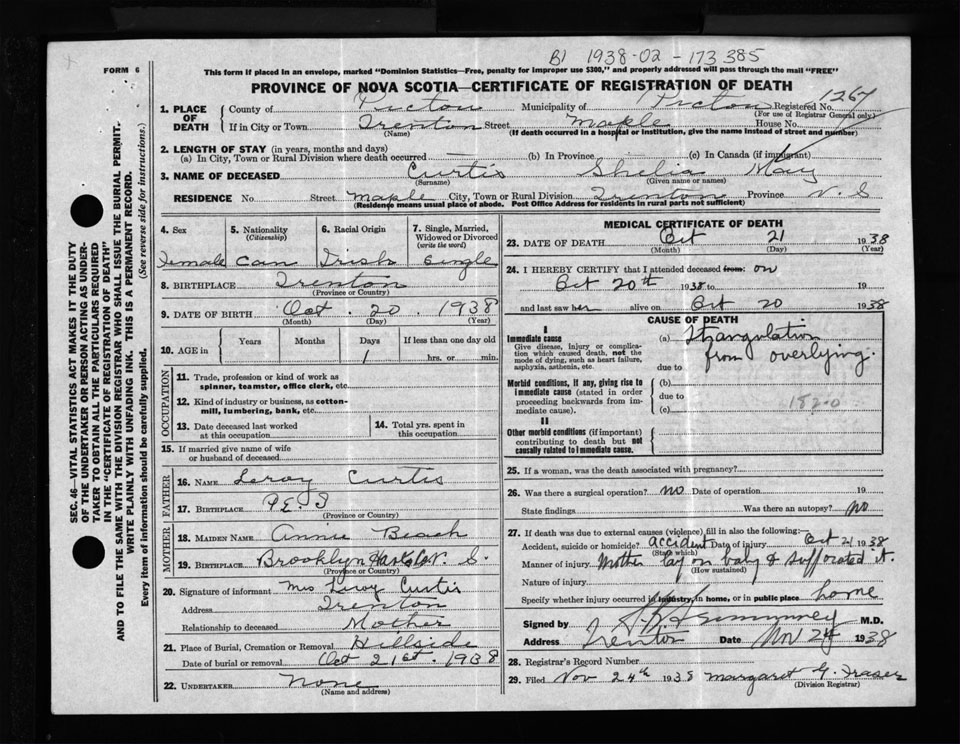 B1 1938-02-173385
FORM 6
This form if placed in an envelope, marked "Dominion Statistics—Free, penalty for improper use $300," and properly addressed will pass through the mail "FREE"
PROVINCE OF NOVA SCOTIA—CERTIFICATE OF REGISTRATION OF DEATH
1. PLACE OF DEATH
County of Pictou Municipality of Pictou Registered No. 1267
(For use of Registrar General only)
If in City or Town Trenton Street Maple House No.
(Name) (If death occurred in a hospital or institution, give the name instead of street and number)
2. LENGTH OF STAY (in years, months and days)
(a) In City, Town or Rural Division where death occurred — (b) In Province (c) In Canada (if immigrant)
3. NAME OF DECEASED Curtis Shelia May
(Surname) (Given name or names)
RESIDENCE No. Street Maple City, Town or Rural Division Trenton Province N. S
(Residence means usual place of abode. Post Office Address for residents in rural parts not sufficient)
4. Sex 5. Nationality (Citizenship) 6. Racial Origin 7. Single, Married, Widowed or Divorced (write the word)
Female Can Irish Single
8. BIRTHPLACE Trenton
(Province or Country)
9. DATE OF BIRTH Oct. 20. 1938
(Month) (Day) (Year)
10. AGE in Years Months Days If less than one day old
1 hrs. or min.
OCCUPATION
11. Trade, profession or kind of work as spinner, teamster, office clerk, etc
12. Kind of industry or business, as cotton-mill, lumbering, bank, etc.
13. Date deceased last worked at this occupation
14. Total yrs. spent in this occupation
15. If married give name of wife or husband of deceased
FATHER
16. NAME Leroy Curtis
17. BIRTHPLACE P.E.I
(Province or Country)
MOTHER
18. MAIDEN NAME Annie Beach
19. BIRTHPLACE Brooklyn N. S.
(Province or Country)
20. Signature of informant Mrs Leroy Curtis
Address Trenton
Relationship to deceased Mother
21. Place of Burial, Cremation or Removal Hillside
Date of burial or removal Oct 21st. 1938
22. UNDERTAKER None
(Name and address)
MEDICAL CERTIFICATE OF DEATH
23. DATE OF DEATH Oct 21 1938
(Month) (Day) (Year)
24. I HEREBY CERTIFY that I attended deceased from: on
Oct 20th 1938 to 19
and last saw her alive on Oct 20 1938
CAUSE OF DEATH
I
Immediate cause (a) Strangulation
Give disease, injury or complication which caused death, not the mode of dying, such as heart failure, asphyxia, asthenia, etc.
from overlying.
due to
Morbid conditions, if any, giving rise to immediate cause (stated in order proceeding backwards from immediate cause).
(b)
due to
(c) 182-0
II
Other morbid conditions (if important) contributing to death but not causally related to immediate cause.
25. If a woman, was the death associated with pregnancy?
26. Was there a surgical operation? no Date of operation 19
State findings Was there an autopsy? no
27. If death was due to external causes (violence) fill in also the following:—
Accident, suicide or homicide? accident Date of injury Oct 21 1938
(State which)
Manner of injury Mother lay on baby & suffocated it.
(How sustained)
Nature of injury
Specify whether injury occurred in industry, in home, or in public place home
Signed by M.D.
Address Trenton Date Nov 24 1938
28. Registrar's Record Number
29. Filed Nov 24th 1938 Margaret G. Fraser
(Division Registrar)
SEC. 46—VITAL STATISTICS ACT MAKES IT THE DUTY
OF THE UNDERTAKER OR PERSON ACTING AS UNDER-
TAKER TO OBTAIN ALL THE PARTICULARS REQUIRED
IN THE "CERTIFICATE OF REGISTRATION OF DEATH"
AND TO FILE THE SAME WITH THE DIVISION REGISTRAR WHO SHALL ISSUE THE BURIAL PERMIT.
WRITE PLAINLY WITH UNFADING INK. THIS IS A PERMANENT RECORD.
Every item of information should be carefully supplied. (See reverse side for instructions.)